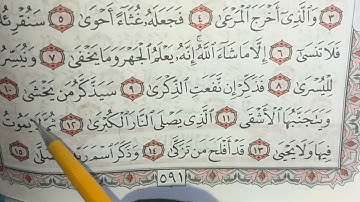 ٣ وَالَّذِي أَخْرَجَ الْمَرْعَىٰ ٤ فَجَعَلَهُ غُثَاءً أَحْوَىٰ ٥ سَنُقْرِئُكَ
فَلَا تَنسَىٰ ٦ إِلَّا مَا شَاءَ اللَّهُ إِنَّهُ يَعْلَمُ الْجَهْرَ وَمَا يَخْفَىٰ ٧ وَنُيَسِّرُ
لِلْيُسْرَىٰ ٨ فَذَكِّرْ إِن نَّفَعَتِ الذِّكْرَىٰ ٩ سَيَذَّكَّرُ مَن يَخْشَىٰ ١٠
وَيَتَجَنَّبُهَا الْأَشْقَى ١١ الَّذِي يَصْلَى النَّارَ الْكُبْرَىٰ ١٢ ثُمَّ لَا يَمُوتُ
فِيهَا وَلَا يَحْيَىٰ ١٣ قَدْ أَفْلَحَ مَن تَزَكَّىٰ ١٤ وَذَكَرَ اسْمَ رَبِّهِ فَصَلَّىٰ ١٥
٥٩١